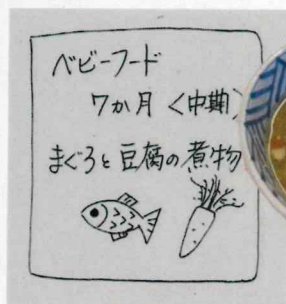 ベビーフード
7か月〈中期〉
まぐろと豆腐の煮物